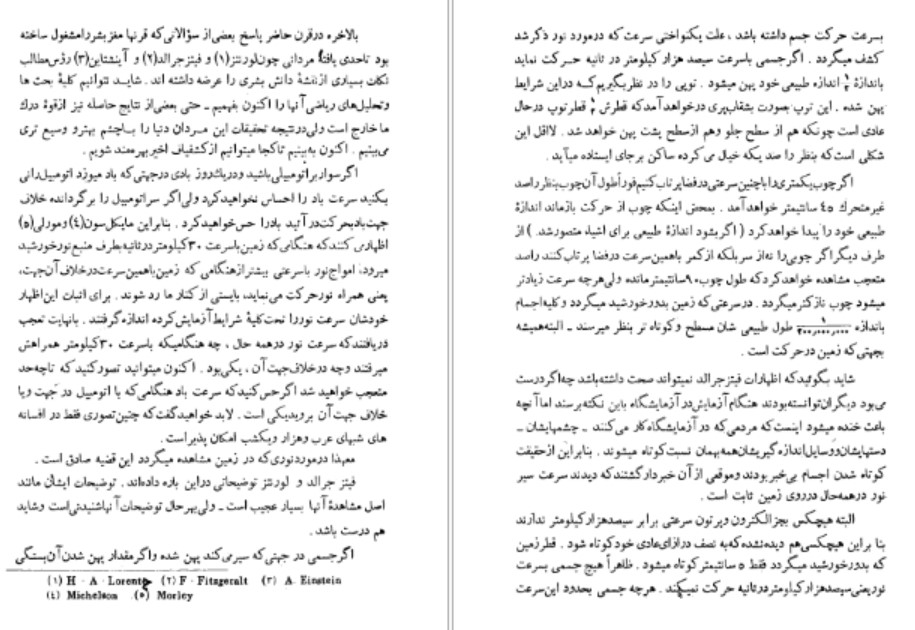 بالاخره درقرن حاضر پاسخ بعضی از سؤالاتی که قرنها مغز بشررا مشغول ساخته
بود تاحدی یافته مردانی چون لورنتز(۱) و فیتز جرالد(۲) و آینشتاین(۳) رؤس مطالب
نکات بسیاری از نقشهٔ دانش بشری را عرضه داشته اند . شاید نتوانیم کلیهٔ بحث ها
وتحلیل‌های ریاضی آنها را اکنون بفهمیم ـ حتی بعضی از نتایج حاصله نیز ازقوهٔ درك
ما خارج است ولی درنتیجه تحقیقات این مردان دنیا را باچشم بهتر و وسیع تری
می‌بینیم . اکنون به‌بینیم تاکجا میتوانیم از کشفیات اخیر بهره‌مند شویم .
اگر سوار بر اتومبیلی باشید ودریك‌روز بادی درجهتی که باد میوزد اتومبیل‌رانی
بکنید سرعت باد را احساس نخواهیدکرد ولی اگر سر اتومبیل را برگردانده خلاف
جهت باد بحرکت در آئید بادرا حس خواهیدکرد . بنابراین مایکل‌سون(٤) ومورلی(۵)
اظهار می‌کنند که هنگامی که زمین باسرعت ۳۰کیلومتر درثانیه بطرف منبع نورخورشید
میرود، امواج نور باسرعتی بیشتر از هنگامی که زمین باهمین سرعت درخلاف آن جهت،
یعنی همراه نور حرکت می‌نماید، بایستی از کنار ما رد شوند . برای اثبات این اظهار
خودشان سرعت نوررا تحت کلیهٔ شرایط آزمایش کرده اندازه گرفتند . بانهایت تعجب
دریافتند که سرعت نور درهمه حال ، چه هنگامیکه باسرعت ۳۰کیلومتر همراهش
میرفتند وچه درخلاف جهت آن ، یکی بود . اکنون میتوانید تصور کنید که تاچه‌حد
متعجب خواهید شد اگر حس کنید که سرعت باد هنگامی که با اتومبیل در جهت ویا
خلاف جهت آن برویدیکی است . لابد خواهید گفت که چنین تصوری فقط در افسانه
های شبهای عرب و هزار ویکشب امکان پذیر است .
معهذا درمورد نوری که در زمین مشاهده میگردد این قضیه صادق است .
فیتز جرالد و لورنتز توضیحاتی دراین باره داده‌اند . توضیحات ایشان مانند
اصل مشاهدهٔ آنها بسیار عجیب است ـ ولی بهرحال توضیحات آنهاشنیدنی‌است وشاید
هم درست باشد .
اگر جسمی در جهتی که سیر می کند پهن شده واگر مقدار پهن شدن آن بستگی
(۱) H · A · Lorentz (۲) F · Fitzgeralt (۳) A. Einstein
(٤) Michelson (۵) Morley
بسرعت حرکت جسم داشته باشد ، علت یکنواختی سرعت که درمورد نور ذکر شد
کشف میگردد . اگر جسمی باسرعت سیصد هزار کیلومتر در ثانیه حرکت نماید
باندازهٔ اندازه طبیعی خود پهن میشود . توپی را در نظر بگیریم که دراین شرایط
پهن شده . این توپ بصورت بشقاب‌پری درخواهد آمد که قطرش قطر توپ درحال
عادی است چونکه هم از سطح جلو وهم ازسطح پشت پهن خواهد شد . لااقل این
شکلی است که بنظر را صد یکه خیال می کرده ساکن برجای ایستاده میآید .
اگر چوب یکمتری را باچنین سرعتی درفضا پرتاب کنیم فوراً طول آن چوب بنظر راصد
غیر متحرك ٤۵ سانتیمتر خواهد آمد . بمحض اینکه چوب از حرکت بازماند اندازهٔ
طبیعی خود را پیدا خواهد کرد ( اگر بشود اندازهٔ طبیعی برای اشیاء متصور شد. ) از
طرف دیگر اگر چوبی را نه از سر بلکه از کمر باهمین سرعت درفضا پرتاب کنند راصد
متعجب مشاهده خواهد کرد که طول چوب ۹۰ سانتیمتر مانده ولی هرچه سرعت زیادتر
میشود چوب نازکتر میگردد . درسرعتی که زمین بدور خورشید میگردد وکلیه اجسام
باندازه ۱/۲۰۰٫۰۰۰٫۰۰۰ طول طبیعی شان مسطح و کوتاه تر بنظر میرسند ـ البته همیشه
بجهتی که زمین در حرکت است .
شاید بگوئید که اظهارات فیتز جرالد نمیتواند صحت داشته باشد چه اگر درست
می‌بود دیگران توانسته بودند هنگام آزمایش در آزمایشگاه باین نکته برسند اما آنچه
باعث خنده میشود اینست که مردمی که در آزمایشگاه کار می کنند ـ چشمهایشان ـ
دستهایشان و وسایل اندازه گیریشان همه بهمان نسبت کوتاه میشوند . بنابراین از حقیقت
کوتاه شدن اجسام بی خبر بودند وموقعی از آن خبردار گشتند که دیدند سرعت سیر
نور درهمه حال در روی زمین ثابت است .
البته هیچکس بجز الکترون وپرتون سرعتی برابر سیصد هزار کیلومتر ندارند
بنا براین هیچکسی هم دیده نشده که به نصف درازای عادی خود کوتاه شود . قطر زمین
که بدور خورشید میگردد فقط ۵ سانتیمتر کوتاه میشود . ظاهراً هیچ جسمی بسرعت
نور یعنی سیصد هزار کیلومتر درثانیه حرکت نمیکند . هرچه جسمی بحدود این سرعت